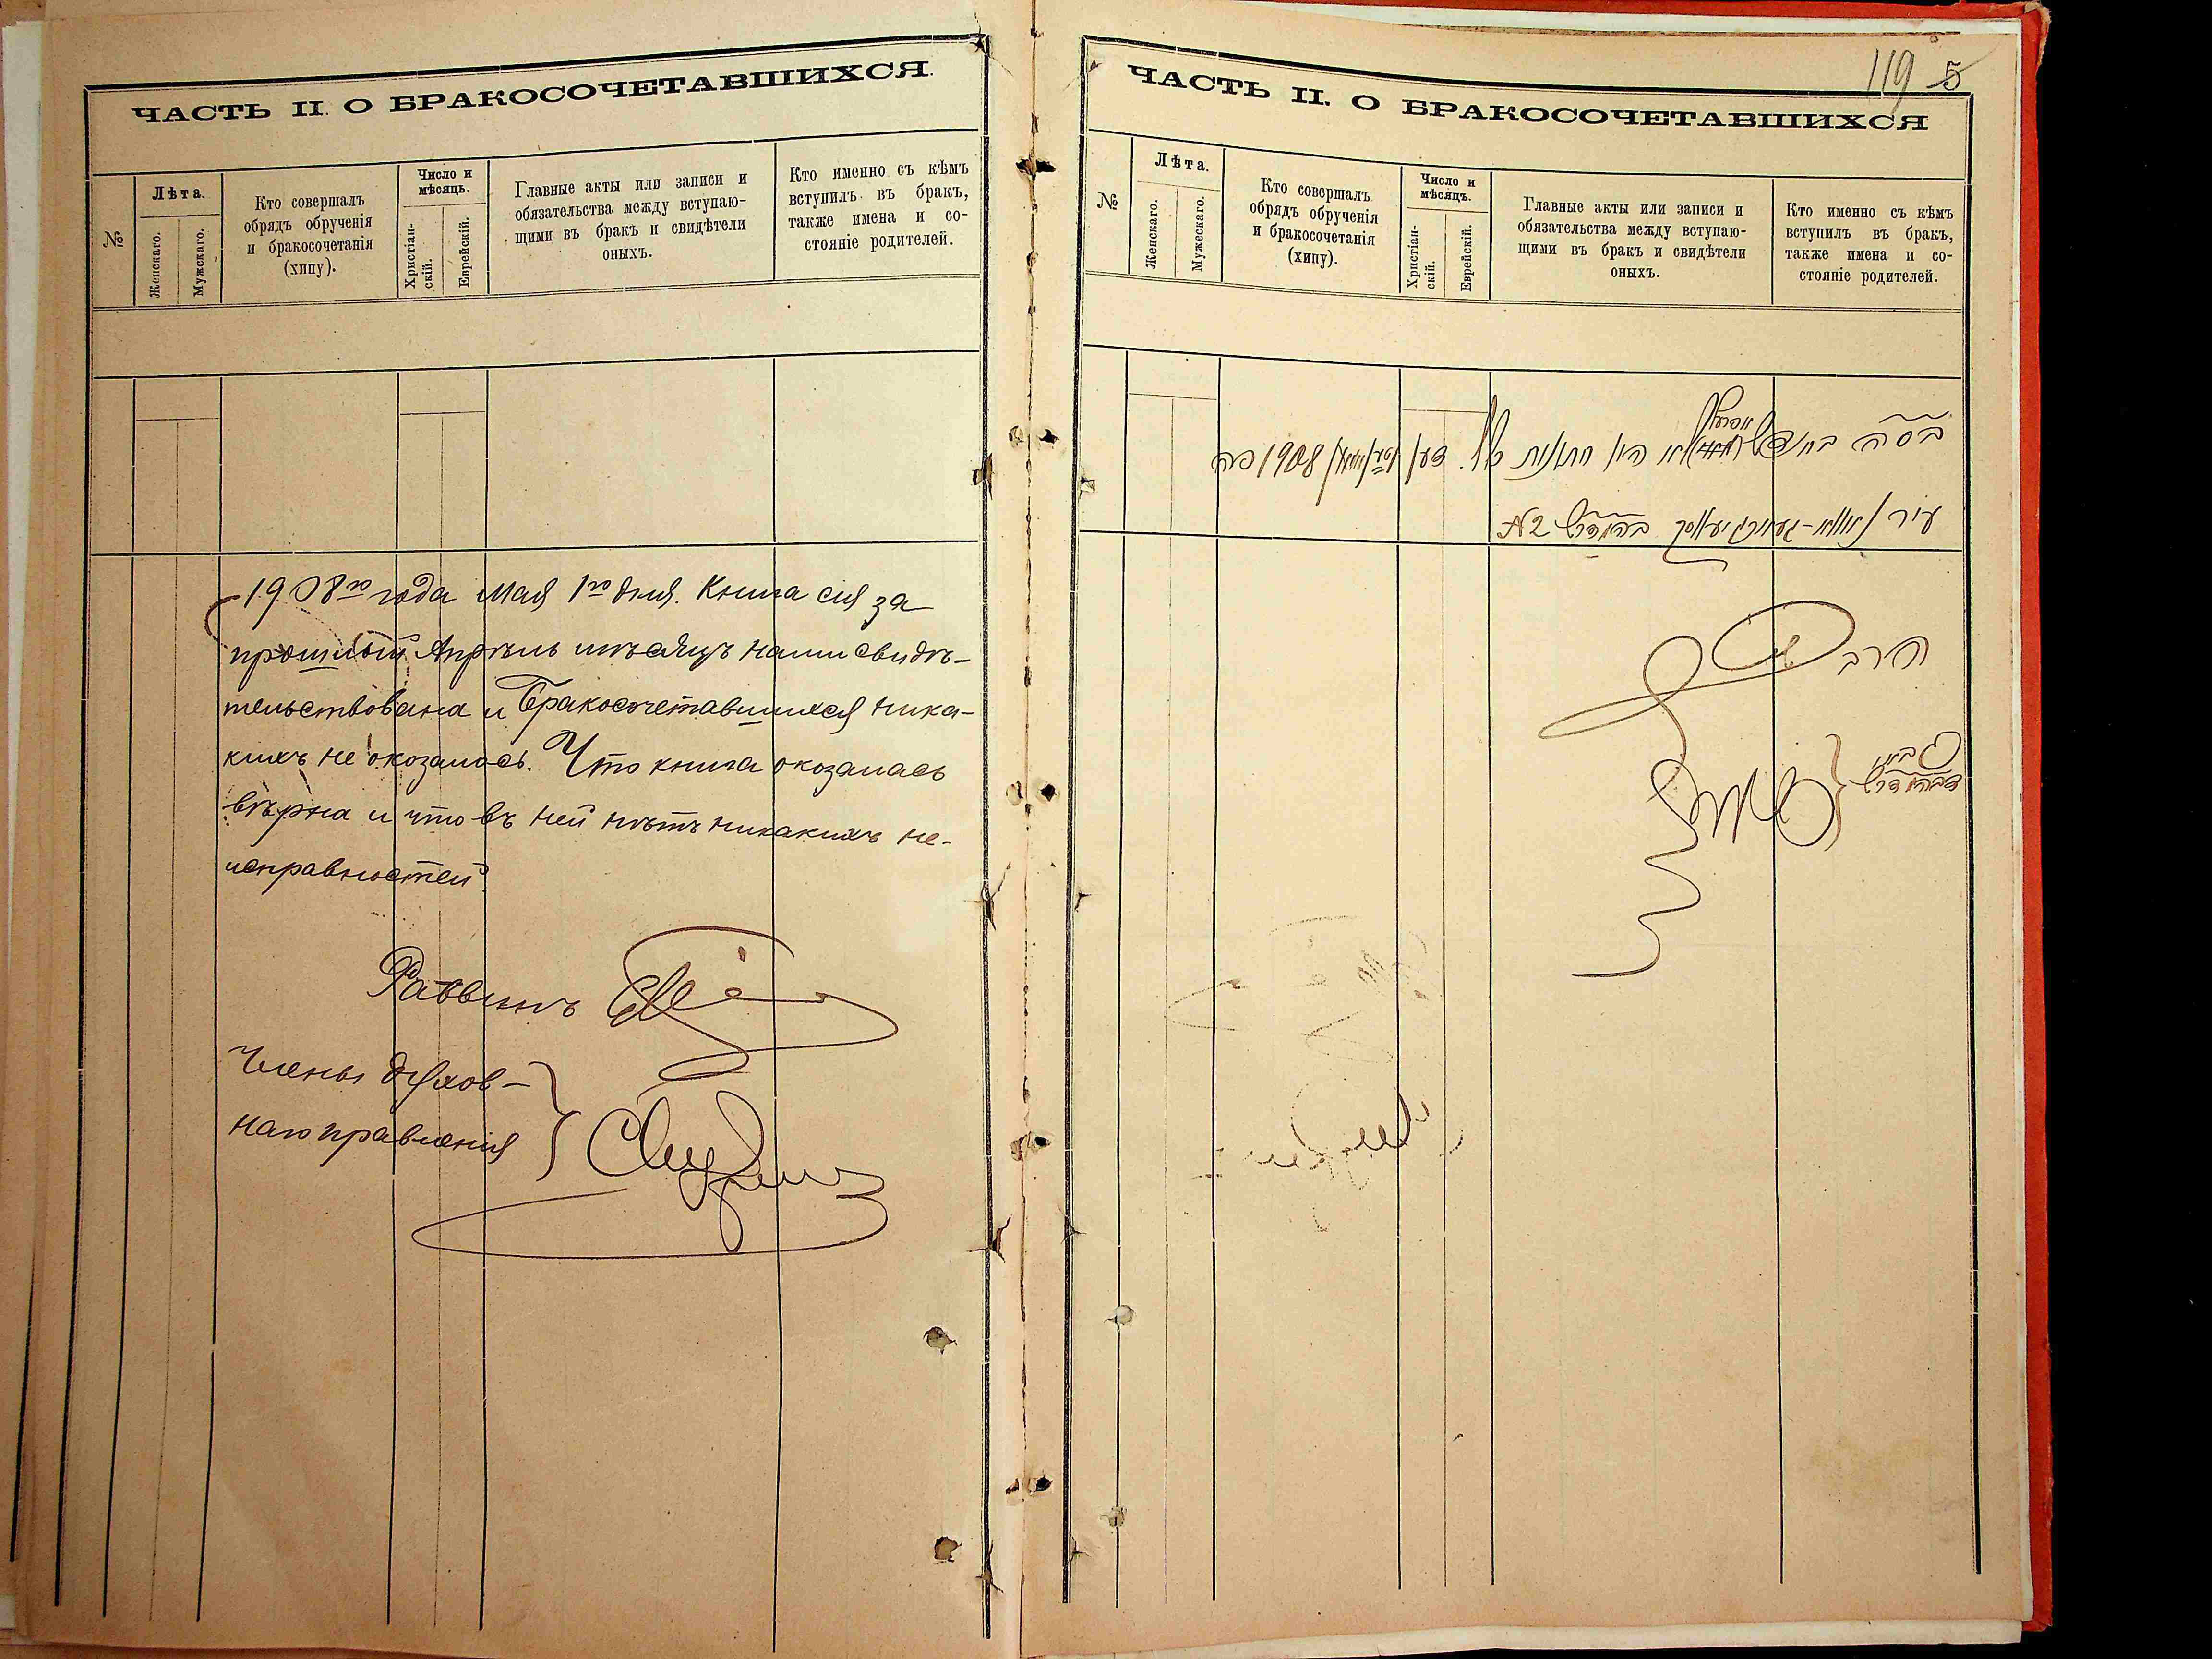 ЧАСТЬ II. О БРАКОСОЧЕТАВШИХСЯ.
№
Лѣта.
Женскаго.
Мужскаго.
Кто совершалъ
обрядъ обрученія
и бракосочетанія
(хипу).
Число и
мѣсяцъ.
Христіан-
скій.
Еврейскій.
Главные акты или записи и
обязательства между вступаю-
щими въ бракъ и свидѣтели
оныхъ.
Кто именно съ кѣмъ
вступилъ въ бракъ,
также имена и со-
стояніе родителей.
1908го года Мая 1го дня. Книга сія за
прошлый Апрѣль мѣсяцъ нами свидѣ-
тельствована и Бракосочетавшихся ника-
кихъ не оказалось. Что книга оказалась
вѣрна и что въ ней нѣтъ никакихъ не-
исправностей
Раввинъ
Члены духов-
наго правленія
119 5
ЧАСТЬ II. О БРАКОСОЧЕТАВШИХСЯ
№
Лѣта.
Женскаго.
Мужескаго.
Кто совершалъ
обрядъ обрученія
и бракосочетанія
(хипу).
Число и
мѣсяцъ.
Христіан-
скій.
Еврейскій.
Главные акты или записи и
обязательства между вступаю-
щими въ бракъ и свидѣтели
оныхъ.
Кто именно съ кѣмъ
вступилъ въ бракъ,
также имена и со-
стояніе родителей.
1908
עיר N2
הרב